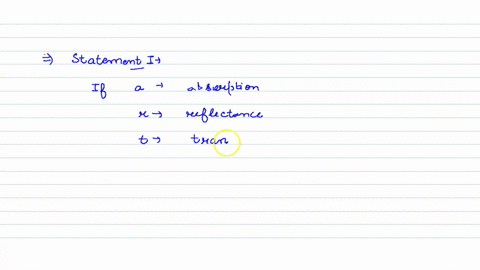 ⇒ Statement I→
If a → absorption
r → reflectance
t → tran